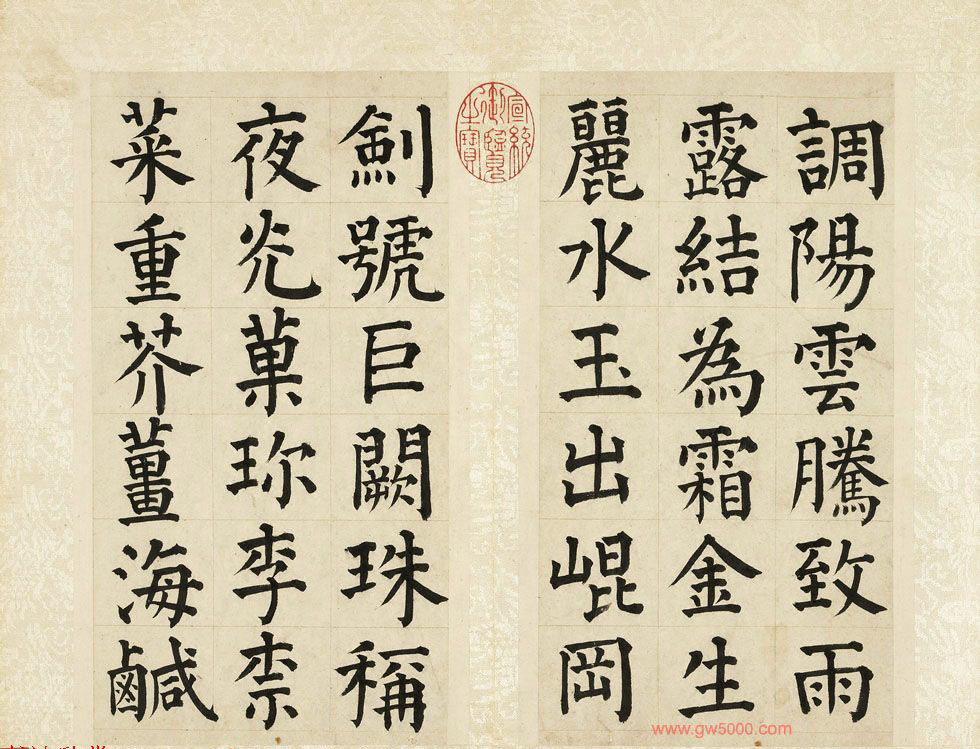 調陽雲騰致雨
露結為霜金生
麗水玉出崐岡
宣統御覽之寶
劍號巨闕珠稱
夜光菓珎李柰
菜重芥薑海鹹
www.gw5000.com